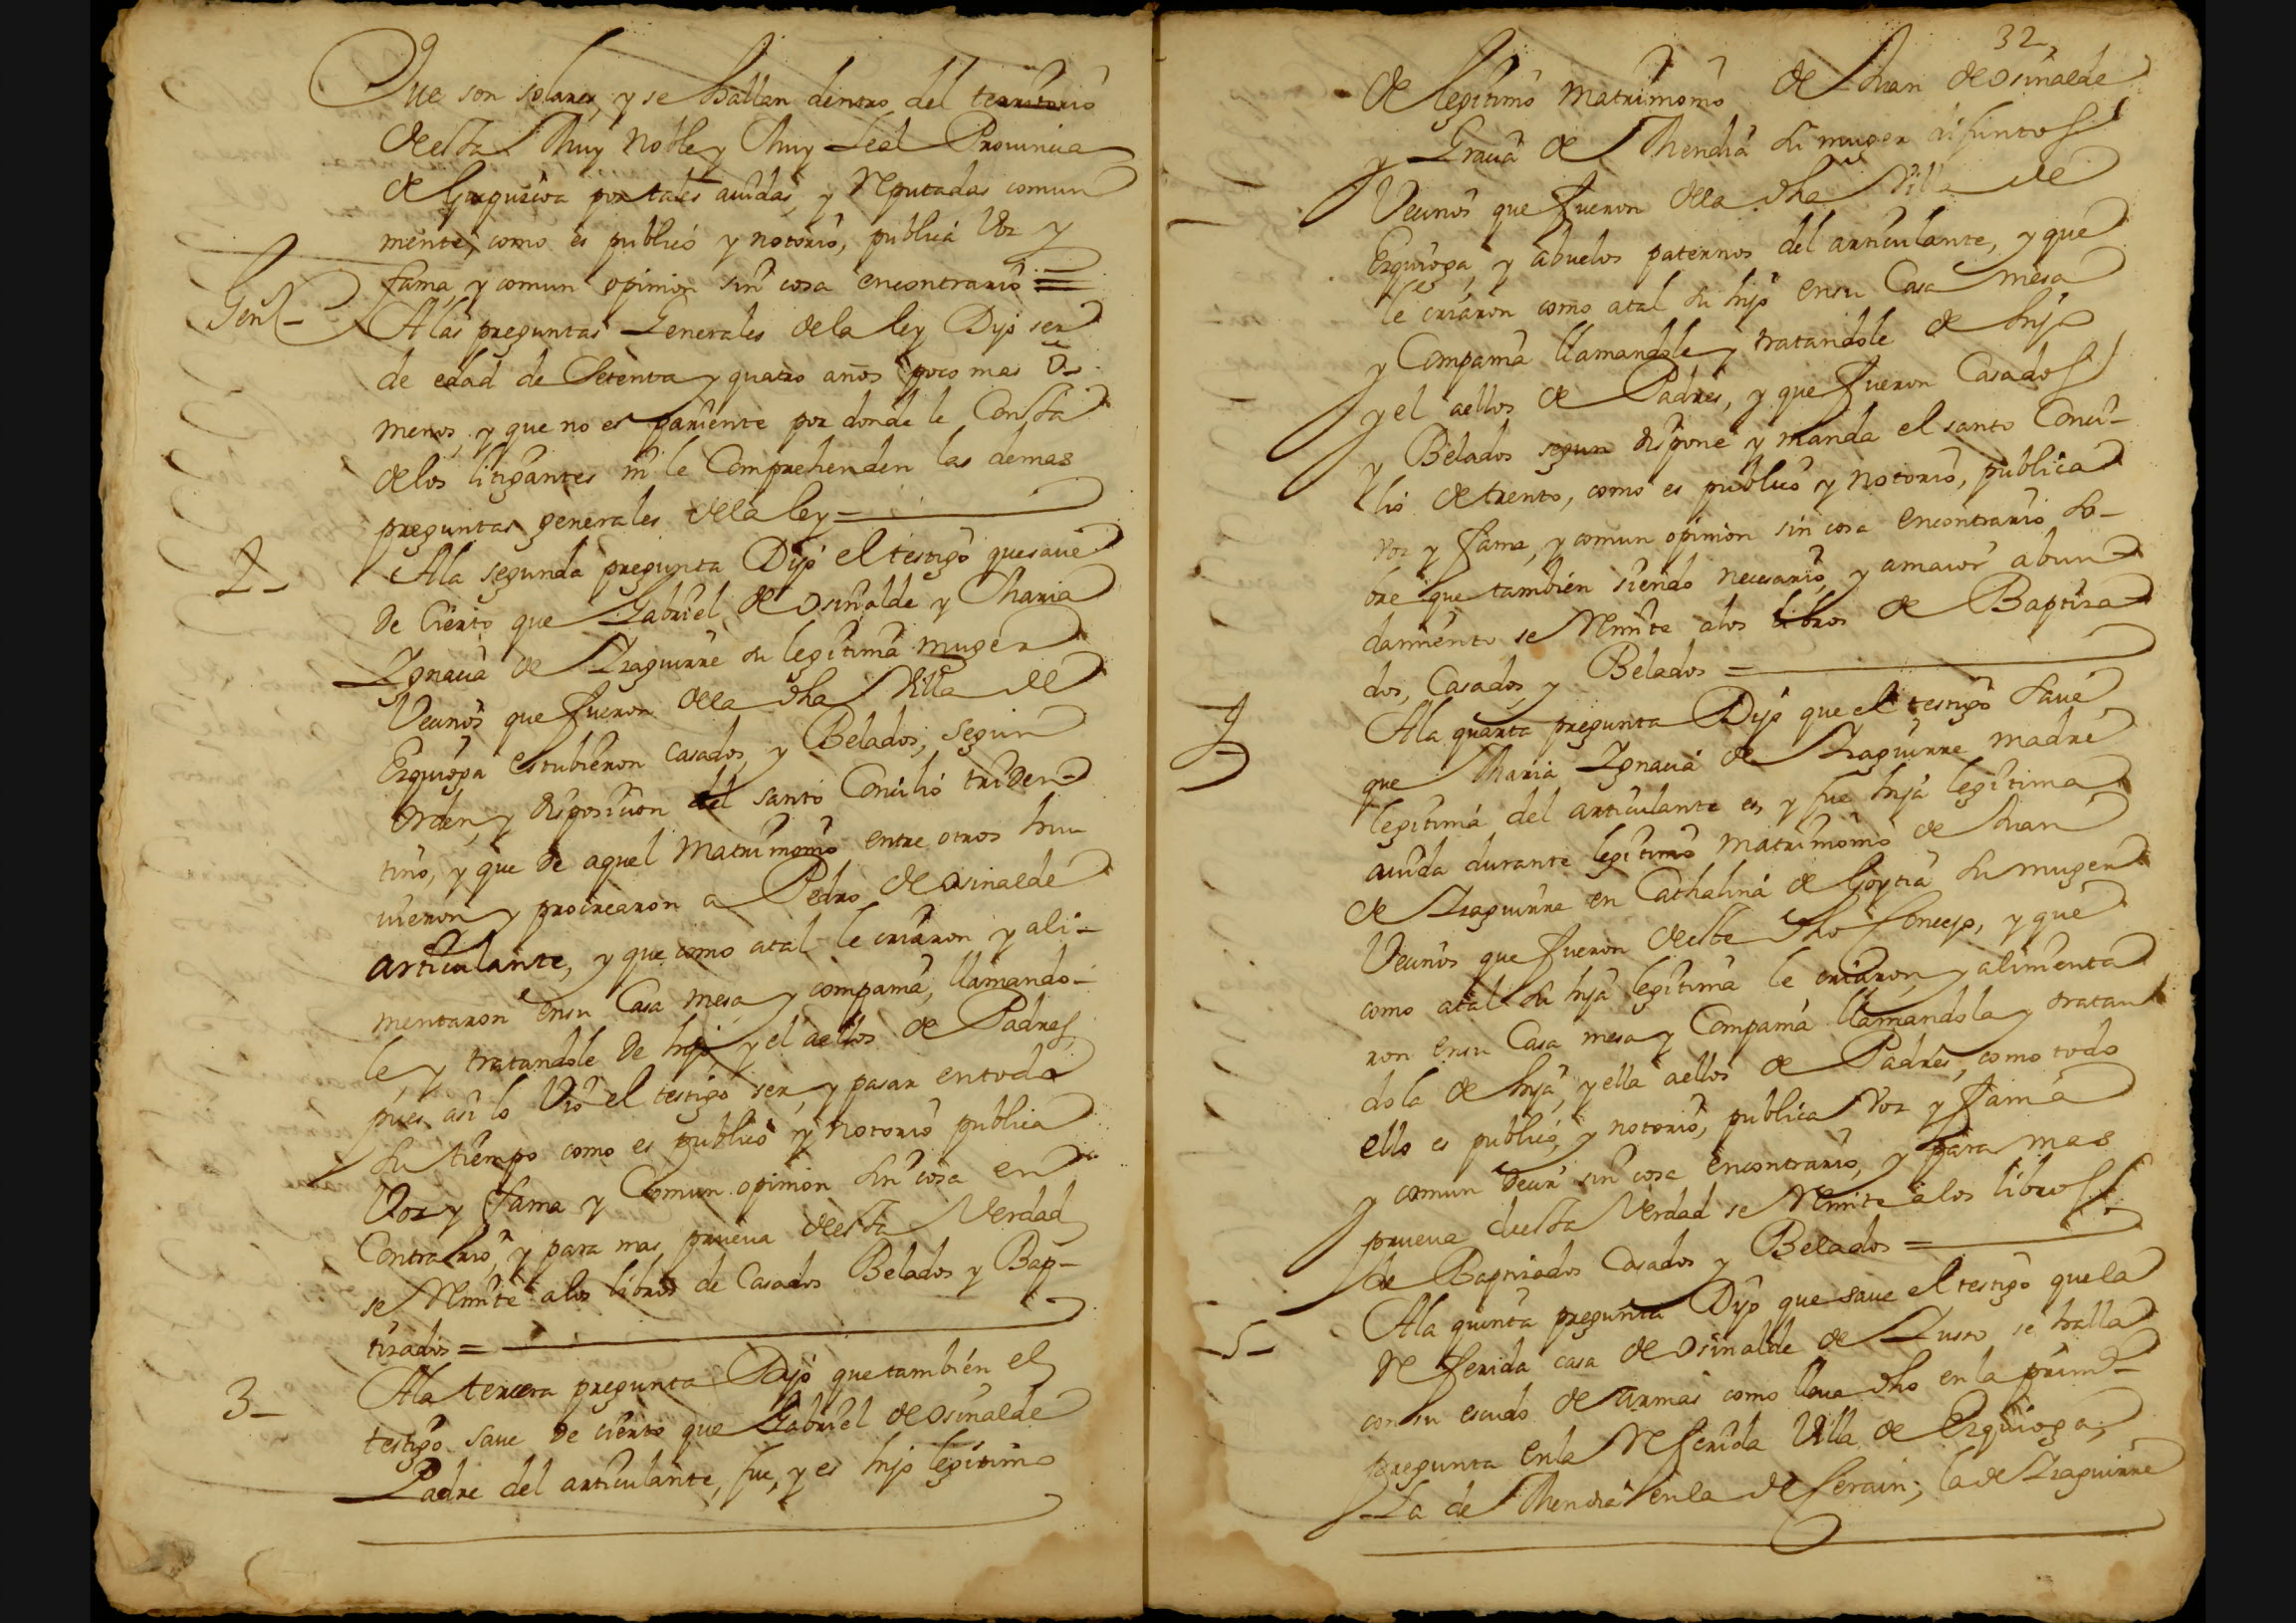 Que son solares, y se hallan dentro del territorio
de esta Muy Noble y Muy Leal Prouincia
de Guipuzcoa por tales auidas, y Reputadas comun
mente, como es publico y notorio, publica Voz y
fama, y comun opinion sin cosa encontrario =
Genl - A las preguntas Generales de la ley Dijo ser
de edad de Setenta y quatro años poco mas o
menos, y que no es pariente por donde le Consta
de los litigantes ni le Comprehenden las demas
preguntas generales de la ley =
2 - Ala segunda pregunta Dijo el testigo que saue
de Cierto que Gabriel de Osinalde y Maria
Ignacia de Yzaguirre su legitima muger
Vecinos que fueron de la dha Villa de
Ezquioga estubieron casados, y Belados, segun
orden, y disposicion del santo Concilio triden-
tino, y que de aquel Matrimonio entre otros hu
uieron y procrearon a Pedro de Osinalde
articulante, y que como atal le criaron y ali-
mentaron ensu Casa mesa y compañia, llamando-
le, y tratandole de hijo, y el aellos de Padres,
pues asi lo Vio el testigo ser, y pasar entodo
su tiempo como es publico y notorio publica
Voz y fama y Comun opinion sin cosa en
Contrario, y para mas prueua de esta Verdad
se Remite alos libros de Casados Belados y Bap-
tizados =
3 - Ala tercera pregunta Dijo que también el
testigo saue de cierto que Gabriel de Osinalde
Padre del articulante, fue, y es hijo legitimo
32
de legitimo Matrimonio de Juan de Osinalde
y Gracia de Mendia su muger difuntos
Vecinos que fueron de la dha Villa de
Ezquioga, y abuelos paternos del articulante, y que
le criaron como atal su hijo ensu Casa mesa
y Compañia llamandole, y tratandole de hijo
y el aellos de Padres, y que fueron Casados
y Belados segun dispone y manda el santo Conci-
lio de trento, como es publico y notorio, publica
voz y fama, y comun opinion sin cosa encontrario so-
bre que también siendo necesario, y amaior abun-
damiento se Remite alos libros de Baptiza
dos, Casados, y Belados =
4 Ala quarta pregunta Dijo que el testigo saue
que Maria Ignacia de Yzaguirre madre
legitima del articulante es, y fue hija legitima
auida durante legitimo matrimonio de Juan
de Yzaguirre en Cathalina de Goytia su muger
Vecinos que fueron de este dho Concejo, y que
como atal su hija legitima le criaron, y alimenta
ron ensu Casa mesa y Compañia llamandola y tratan
dola de hija, y ella aellos de Padres, como todo
ello es publico, y notorio, publica voz y fama
y comun decir sin cosa encontrario, y para mas
prueua de esta Verdad se Remite alos libros
de Baptizados Casados y Belados =
5 - Ala quinta pregunta Dijo que saue el testigo quela
Referida casa de Osinalde de Yuso se halla
con su escudo de armas como lleua dho en la prim-
pregunta enla Referida Villa de Ezquioga,
La de Mendia enla de Cerain; la de Yzaguirre